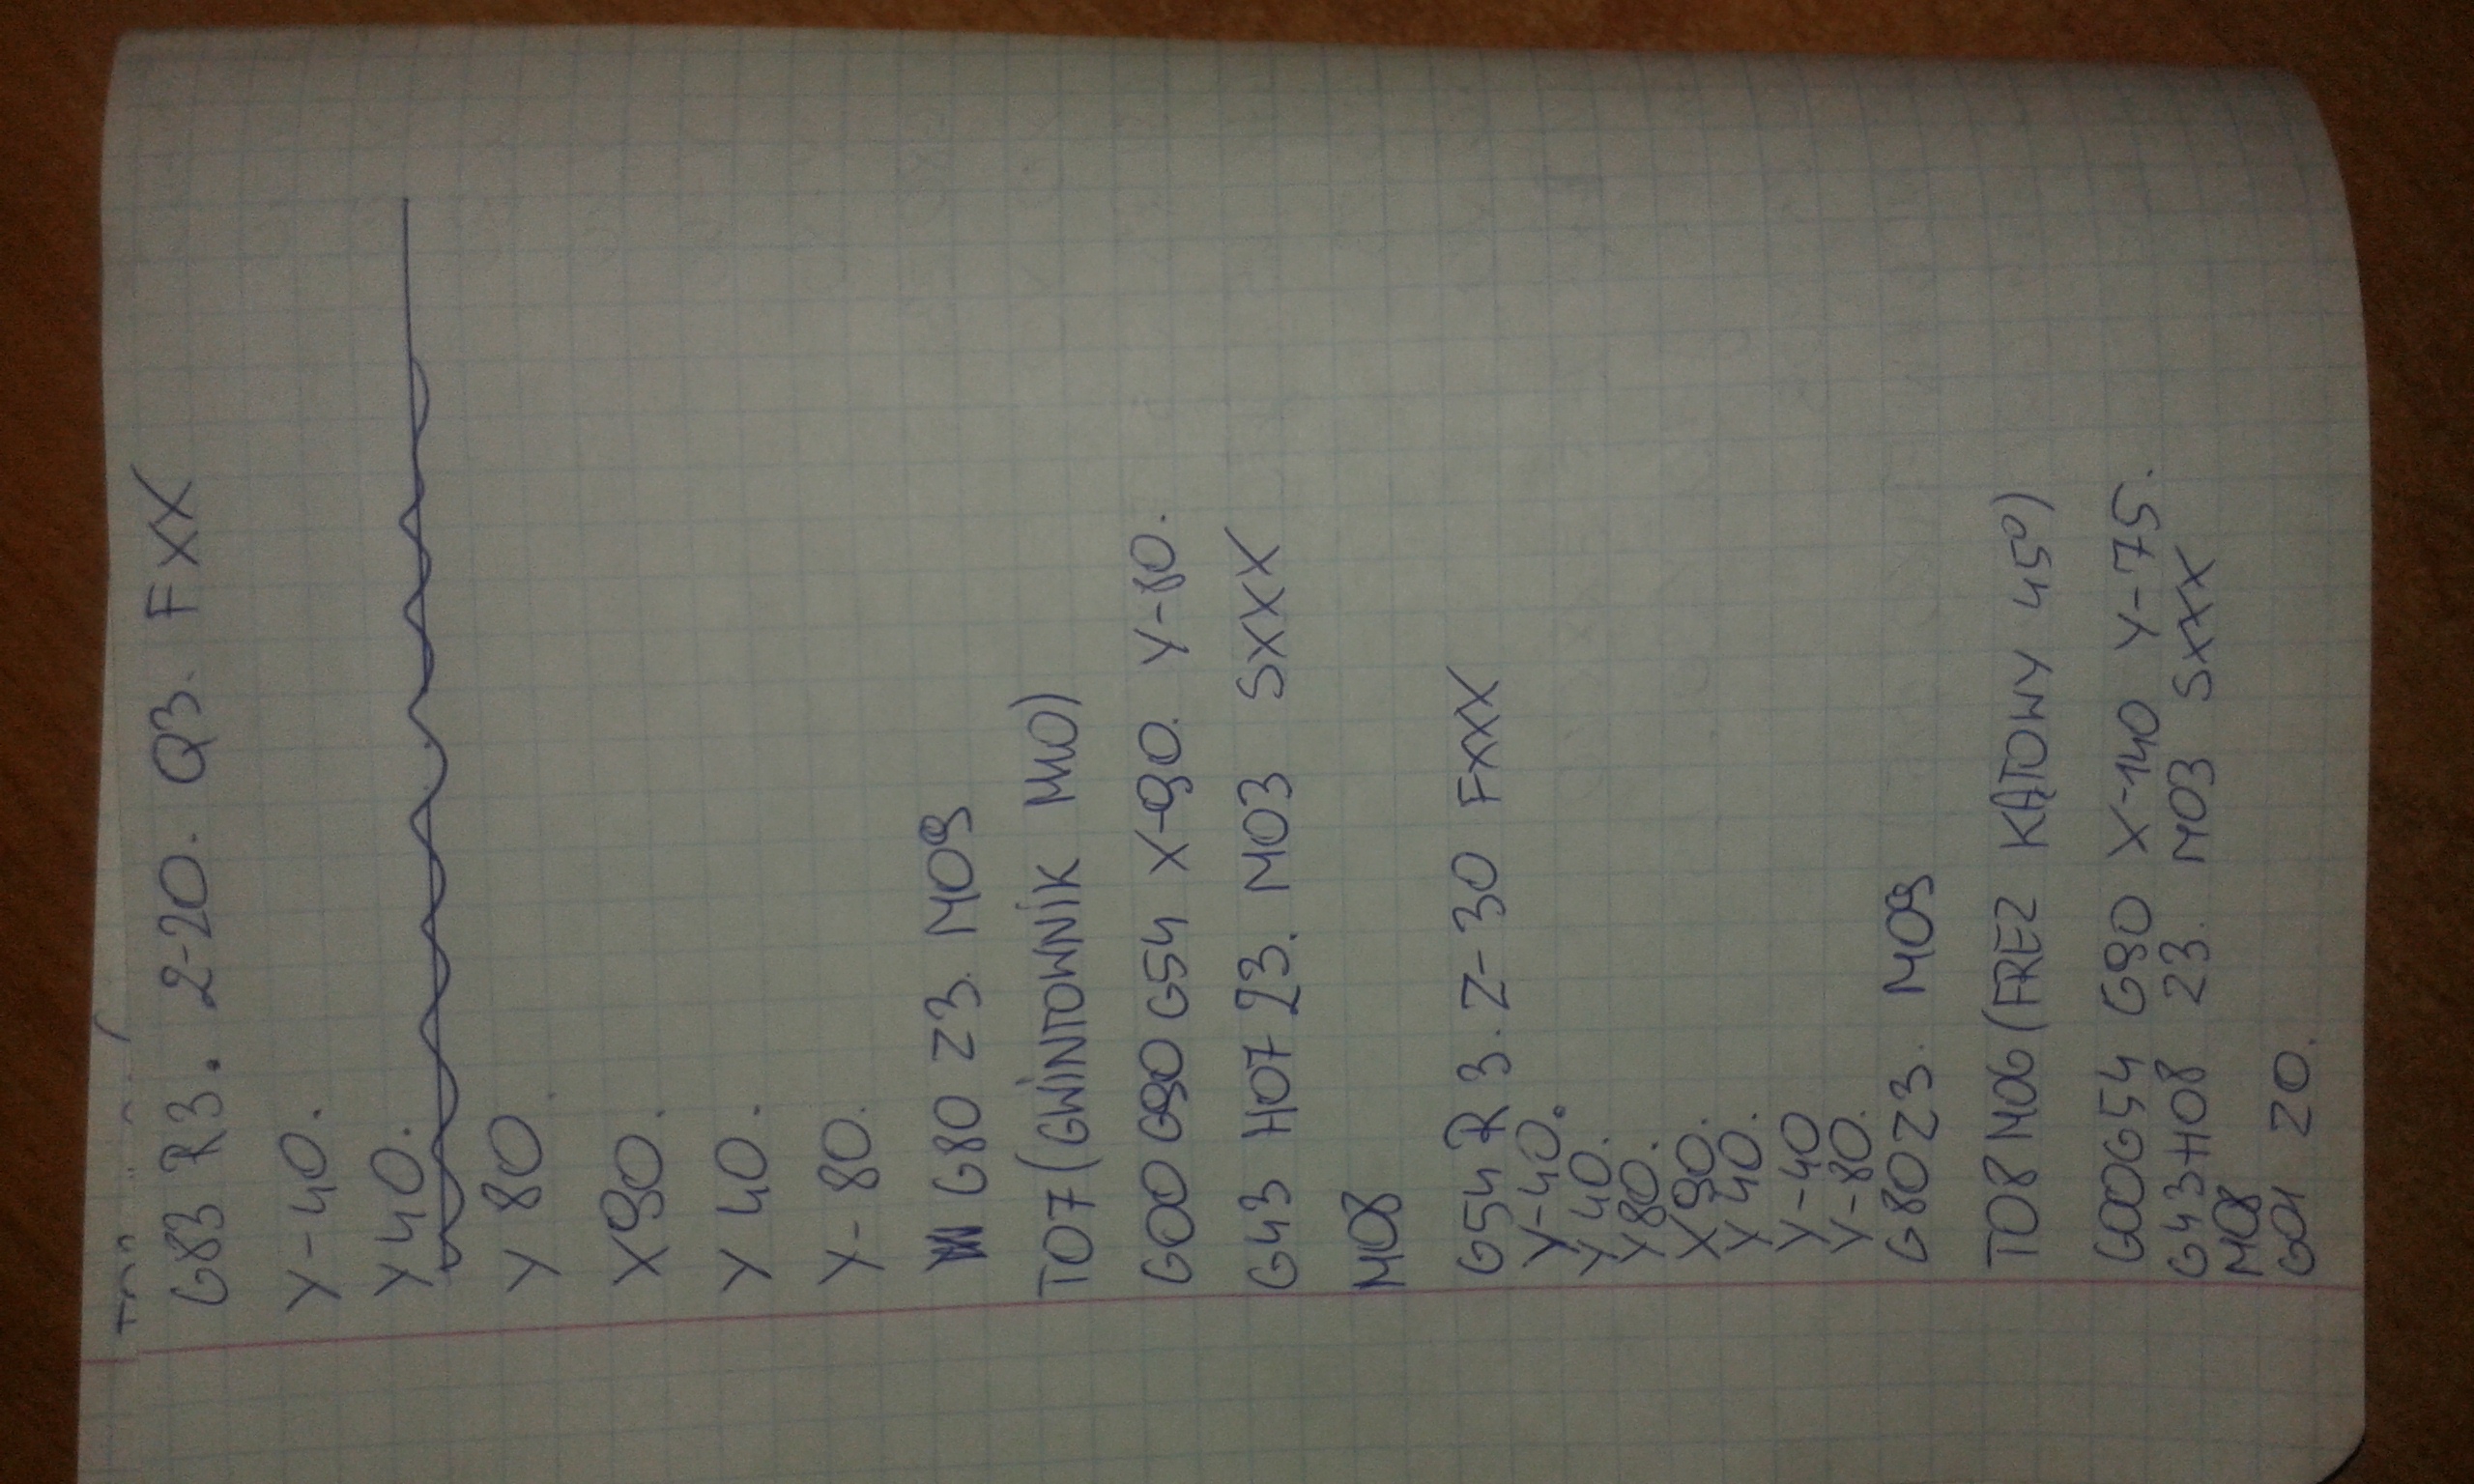 G83 R3. Z-20. Q3. FXX
Y-40.
Y40.
Y80.
X90.
Y40.
Y-80.
G80 Z3. M09
T07 (GWINTOWNIK M10)
G00 G90 G54 X-90. Y-80.
G43 H07 Z3. M03 SXXX
M08
G54 R3. Z-30 FXXX
Y-40.
Y40.
Y80.
X90.
Y40.
Y-40
Y-80.
G80 Z3. M09
T08 M06 (FREZ KĄTOWY 45°)
G00 G54 G90 X-140 Y-75.
G43 H08 Z3. M03 SXXX
M08
G01 Z0.